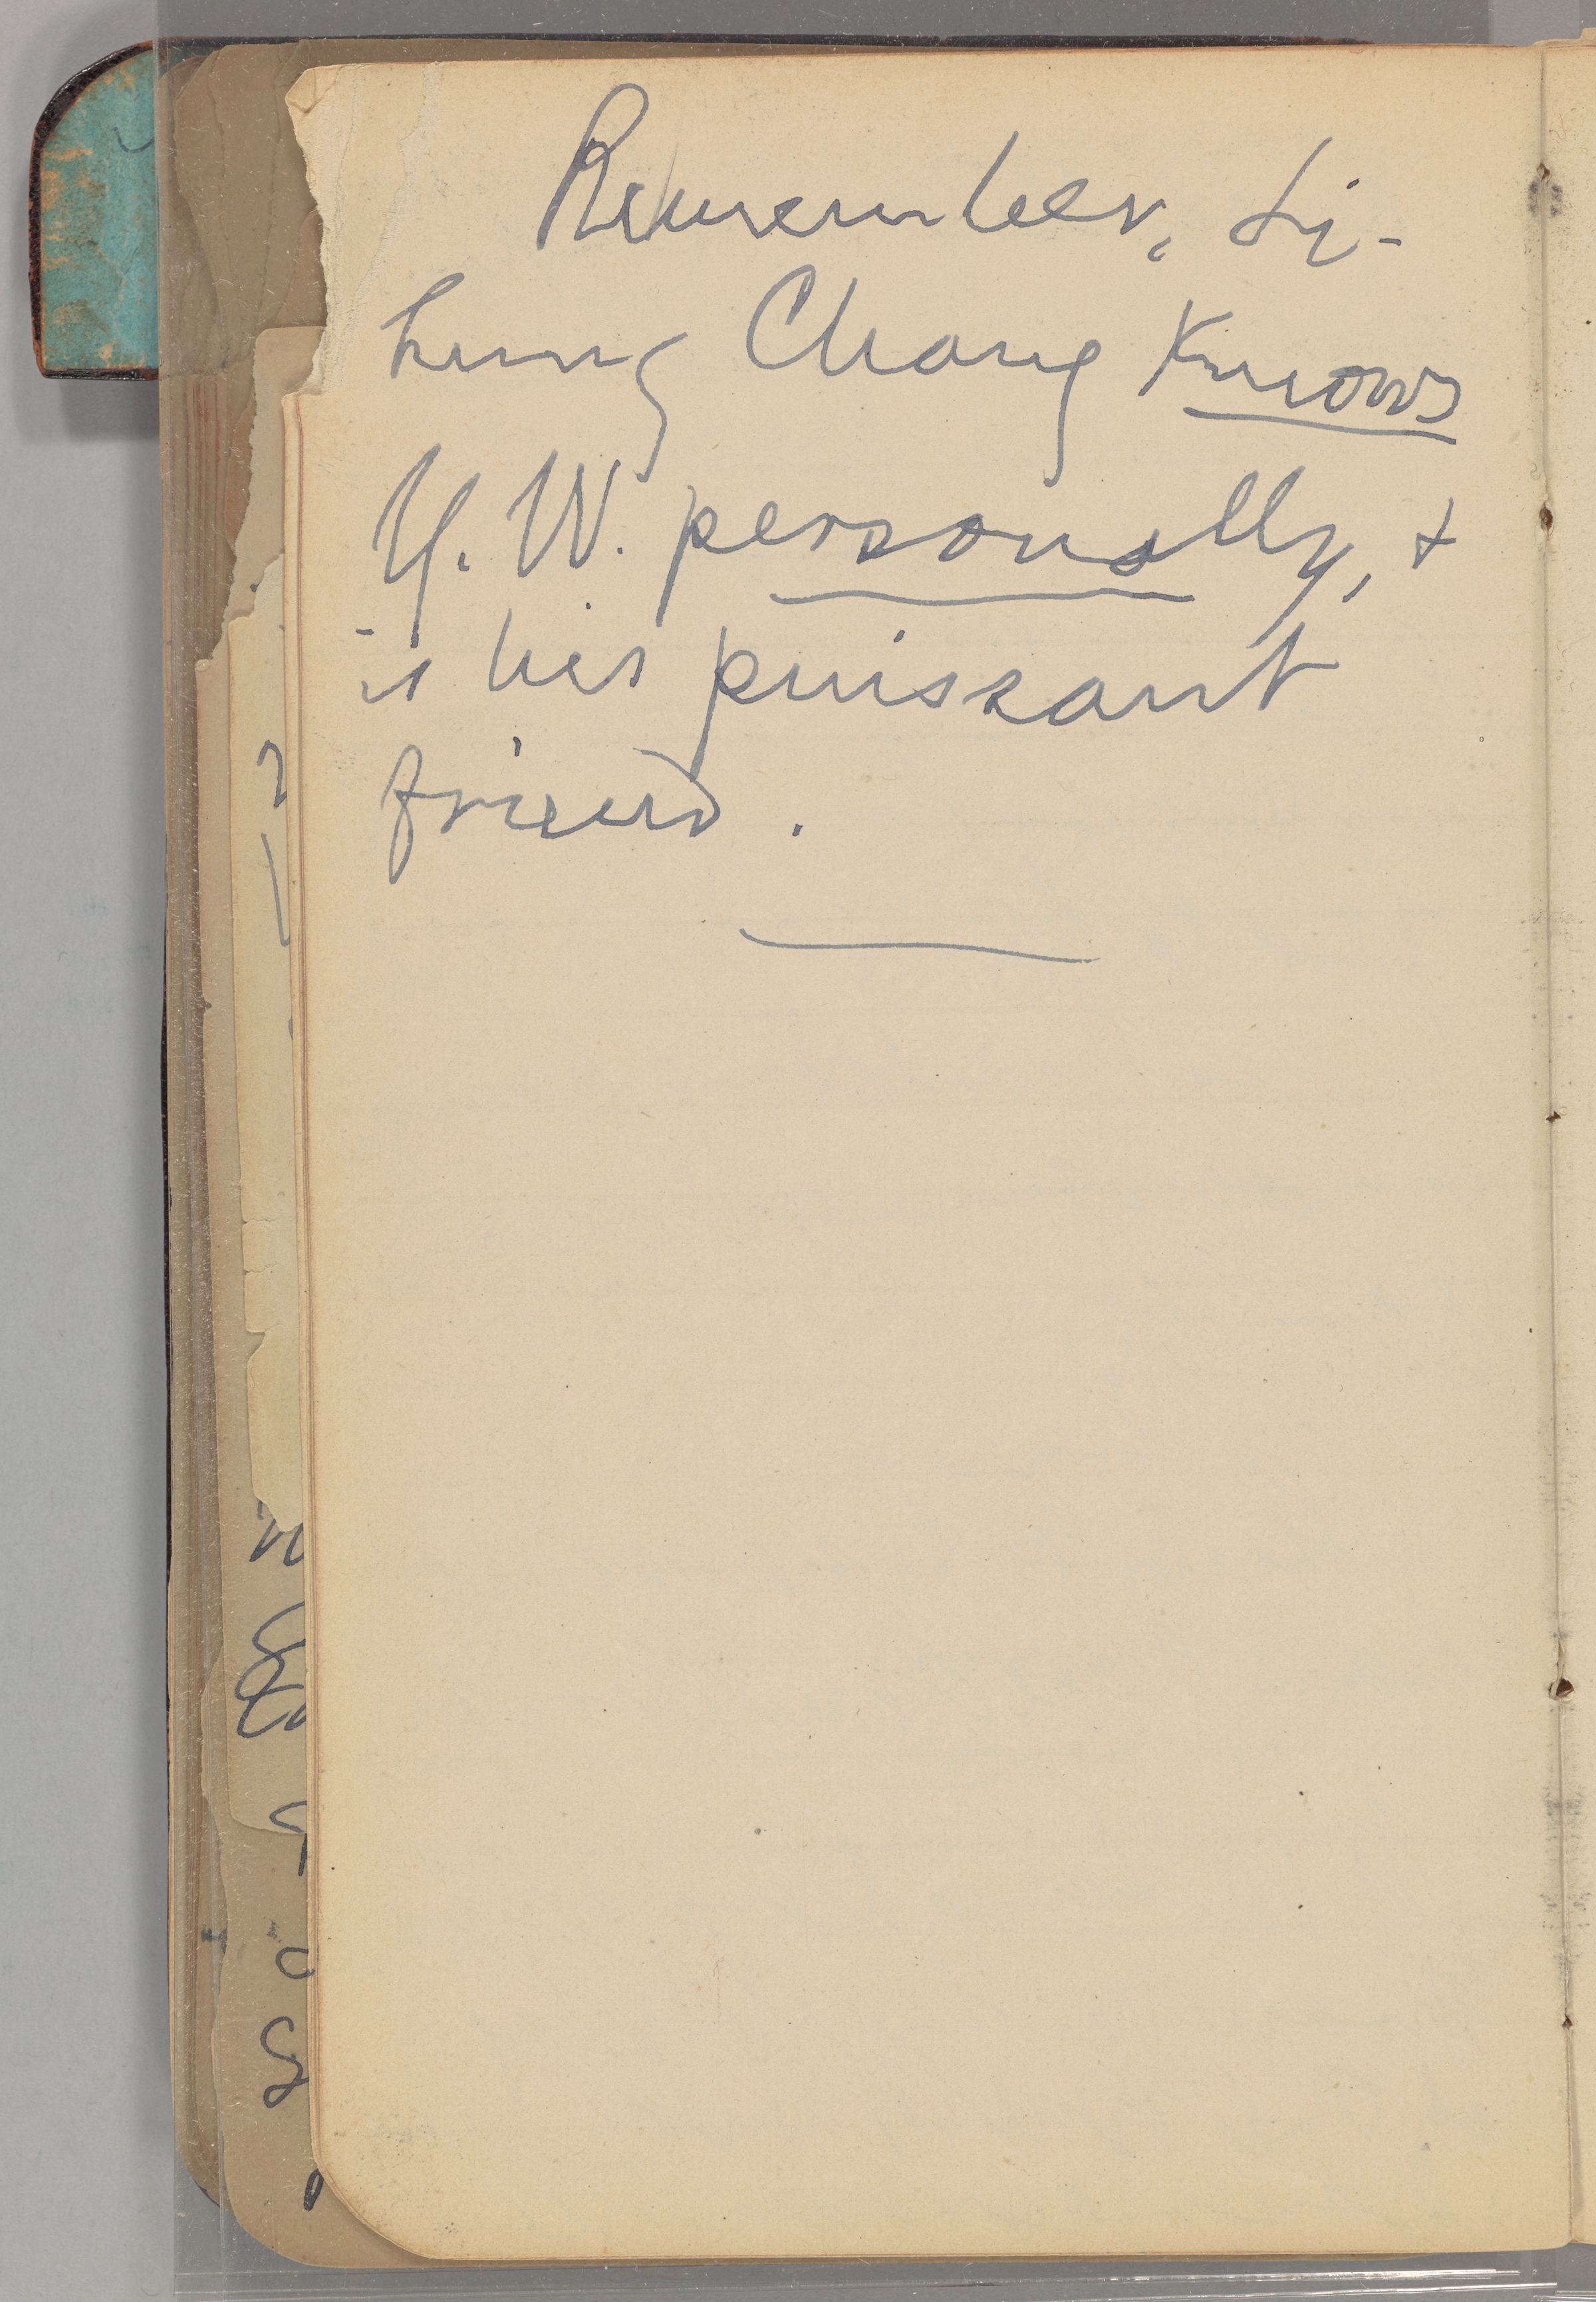 Remember, Li-
hung Chang knows
Y. W. personally, +
is his puissant
friend.